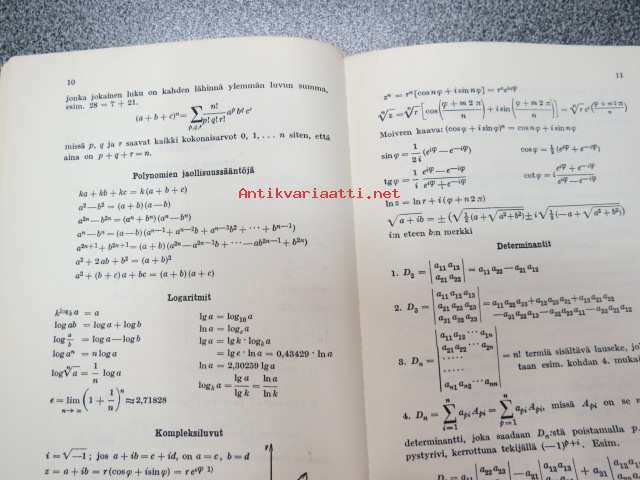 10
jonka jokainen luku on kahden lähinnä ylemmän luvun summa,
esim. 28 = 7 + 21.
(a + b + c)ⁿ = ∑ p,q,r n!/(p! q! r!) aᵖ b^q cʳ
missä p, q ja r saavat kaikki kokonaisarvot 0, 1, . . . n siten, että
aina on p + q + r = n.
Polynomien jaollisuussääntöjä
ka + kb + kc = k (a + b + c)
a² — b² = (a + b) (a — b)
a²ⁿ — b²ⁿ = (aⁿ + bⁿ) (aⁿ — bⁿ)
aⁿ — bⁿ = (a — b) (aⁿ⁻¹ + aⁿ⁻²b + aⁿ⁻³b² + ··· + bⁿ⁻¹)
a²ⁿ⁺¹ + b²ⁿ⁺¹ = (a + b) (a²ⁿ — a²ⁿ⁻¹b + ··· — ab²ⁿ⁻¹ + b²ⁿ)
a² + 2 ab + b² = (a + b)²
a² + (b + c) a + bc = (a + b) (a + c)
Logaritmit
k^(log_k a) = a
log ab = log a + log b
log a/b = log a — log b
log aⁿ = n log a
log ⁿ√a = 1/n log a
e = lim n→∞ (1 + 1/n)ⁿ ≈ 2,71828
lg a = log₁₀ a
ln a = logₑ a
lg a = lg k · logₖ a
= lg e · ln a = 0,43429 · ln a
ln a = 2,30259 lg a
logₖ a = lg a / lg k = ln a / ln k
Kompleksiluvut
i = √—1; jos a + ib = c + id, on a = c, b = d
z = a + ib = r (cos φ + i sin φ) = r e^(iφ) ¹)
Antikvariaatti.net
11
zⁿ = rⁿ [cos n φ + i sin n φ] = rⁿ e^(inφ)
ⁿ√z = ⁿ√r [cos ((φ + m 2 π)/n) + i sin ((φ + m 2 π)/n)] = ⁿ√r e^(i(φ + m 2 π)/n)
Moivren kaava: (cos φ + i sin φ)ⁿ = cos n φ + i sin n φ
sin φ = 1/(2 i) (e^(iφ) — e^(—iφ)) cos φ = ½ (e^(iφ) + e^(—iφ))
tg φ = 1/i (e^(iφ) — e^(—iφ))/(e^(iφ) + e^(—iφ)) cot φ = i (e^(iφ) + e^(—iφ))/(e^(iφ) — e^(—iφ))
ln z = ln r + i (φ + n 2 π)
√(a + ib) = ± (√(½ (a + √(a² + b²))) ± i √(½ (—a + √(a² + b²))))
i:n eteen b:n merkki
Determinantit
1. D₂ = | a₁₁ a₁₂ ; a₂₁ a₂₂ | = a₁₁ a₂₂ — a₂₁ a₁₂
2. D₃ = | a₁₁ a₁₂ a₁₃ ; a₂₁ a₂₂ a₂₃ ; a₃₁ a₃₂ a₃₃ |
3. Dₙ = | a₁₁ a₁₂ ··· a₁ₙ ; a₂₁ a₂₂ ··· a₂ₙ ; ····· ; aₙ₁ aₙ₂ ··· aₙₙ | = n! termiä sisältävä lauseke,
taan esim. kohdan 4.
4. Dₙ = ∑ i=1 n a_pi A_pi = ∑ p=1 n a_pi A_pi, missä A_pi on se
determinantti, joka saadaan Dₙ:stä poistamalla p.
pystyrivi, kerrottuna tekijällä (—1)^(p+i). Esim.